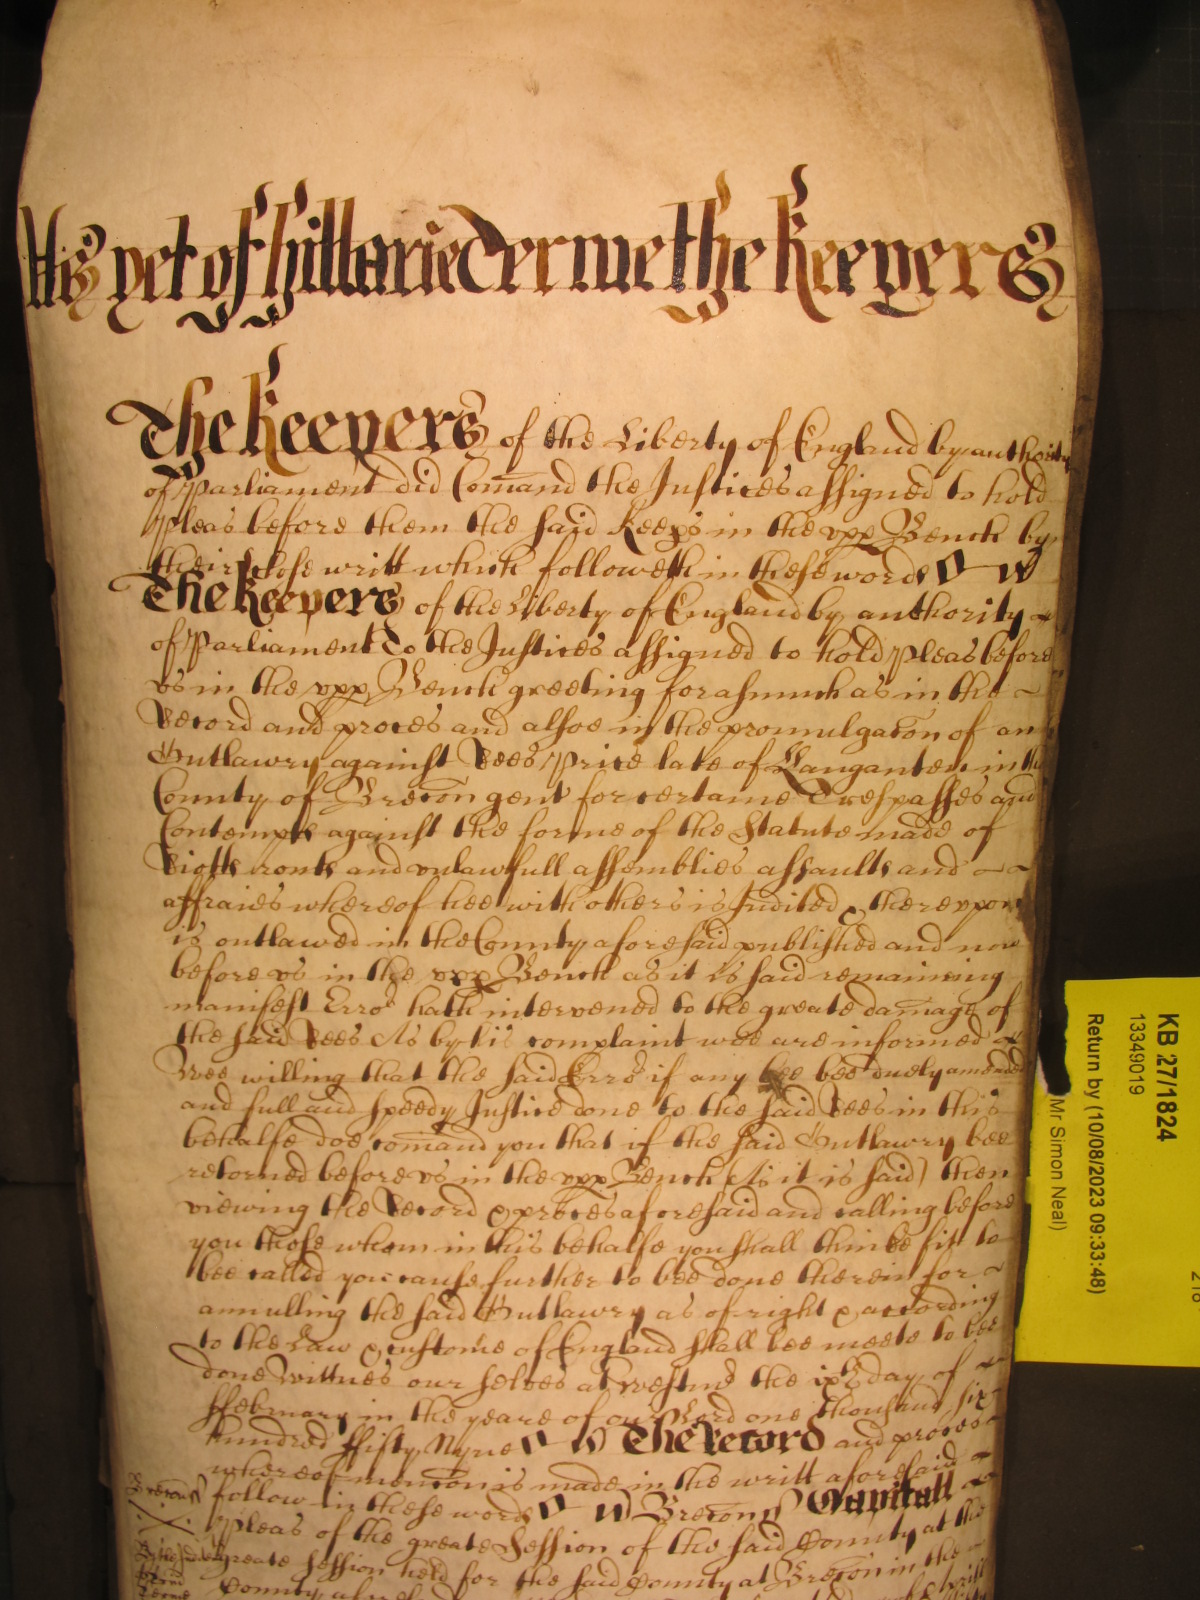 As yet of Hillarie Terme the Keepers
The Keepers of the Liberty of England by authority
of Parliament did Comand the Justices assigned to hold
Pleas before them the said Keeps in the upp Bench by
their close writt which followeth in these words
The Keepers of the Liberty of England by authority
of Parliament To the Justices assigned to hold Pleas before
us in the upp Bench greeting forasmuch as in the
Record and proces and alsoe in the promulgacon of an
Outlawry against Rees Price late of Langanten in the
County of Brecon gent for certaine Trespasses and
Contempts against the forme of the Statute made of
Riotts routs and unlawfull assemblies assaults and
affraies whereof hee with others is Indited & thereupon
is outlawed in the County aforesaid published and now
before us in the upp Bench as it is said remaining
manifest Erro hath intervened to the greate damage of
the said Rees As by his complaint wee are informed
Wee willing that the said Erro if any bee bee duely amended
and full and speedy Justice done to the said Rees in this
behalfe doe comand you that if the said Outlawry bee
retorned before us in the upp Bench (As it is said) then
viewing the Record & proces aforesaid and calling before
you those whom in this behalfe you shall thinke fitt to
bee called you cause further to bee done therein for
annulling the said Outlawry as of right & according
to the Law & custome of England shall bee meete to bee
done Wittnes our selves at Westmr the ixth day of
ffebruary in the yeare of our Lord one thousand six
hundred ffifty Nyne The Record and proces
whereof mencon is made in the writt aforesaid
follow in these words Brecon Capitall
Pleas of the greate Session of the said County at the
greate Session held for the said County at Brecon in the
County
Brecon
KB 27/1824
13349019
Return by (10/08/2023 09:33:48)
Mr Simon Neal)